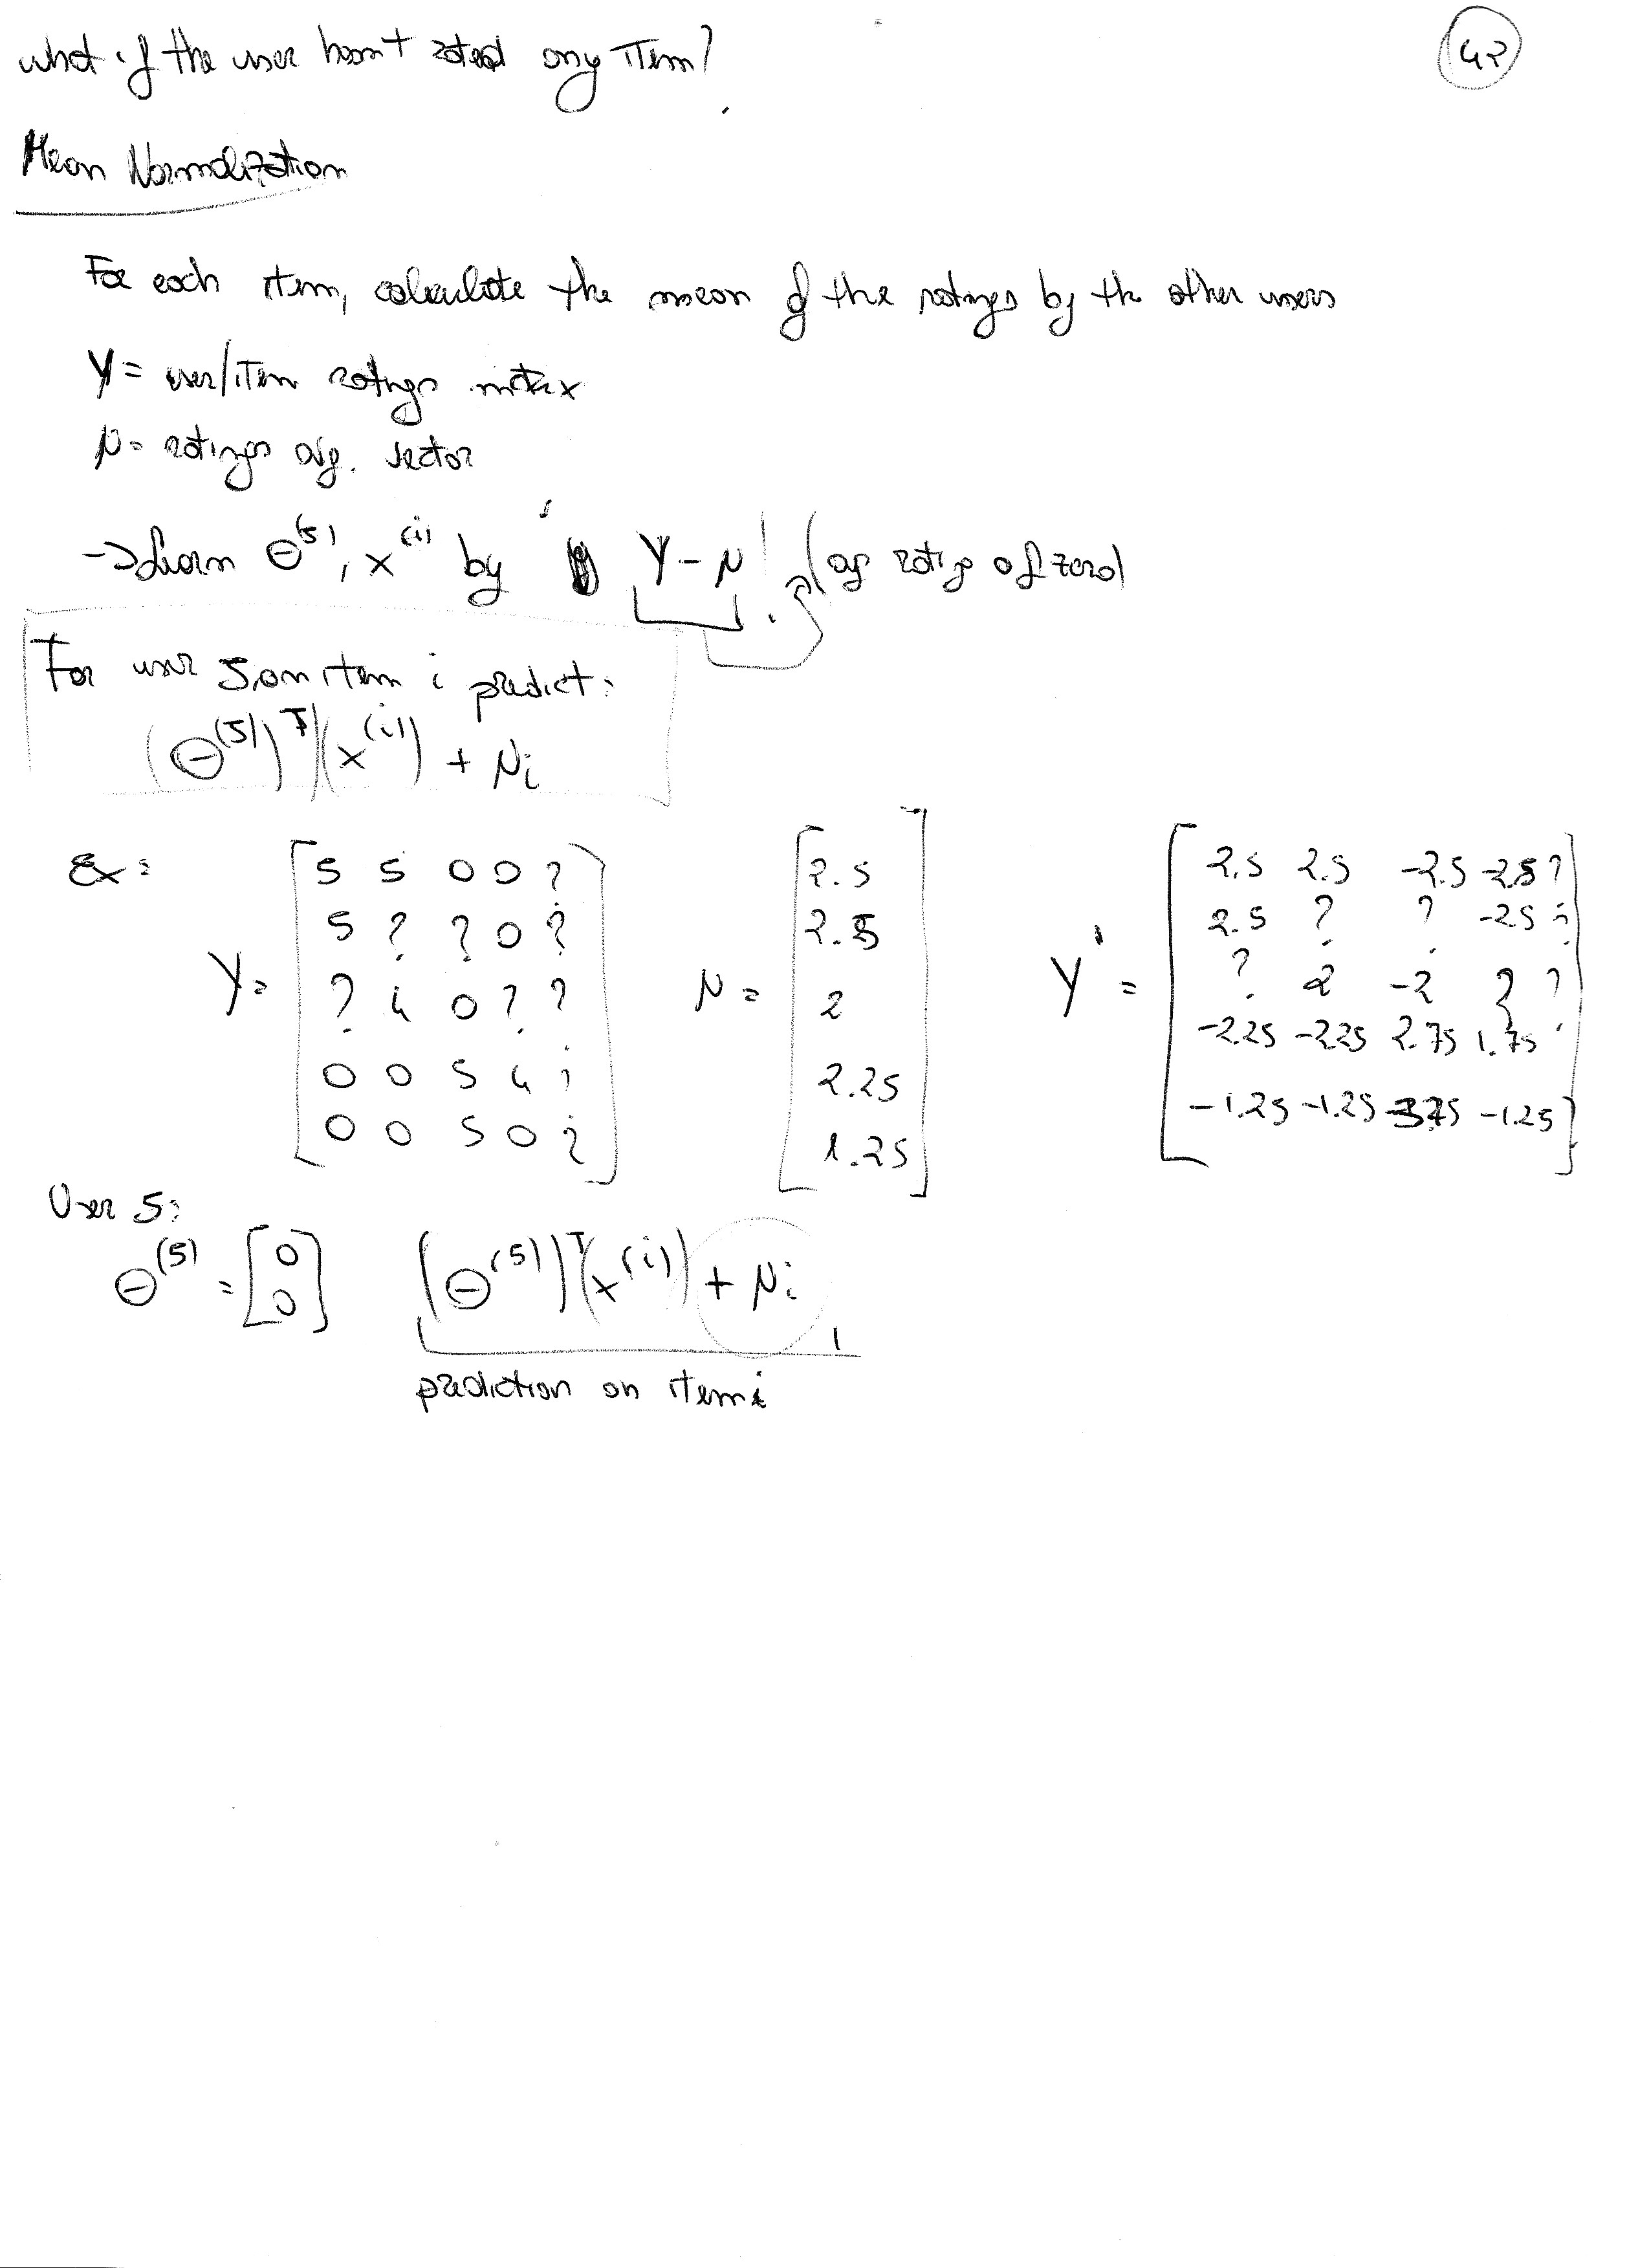 what if the user hasn't rated any item?
42
Mean Normalization
For each item, calculate the mean of the ratings by the other users
Y = user/item ratings matrix
μ = ratings avg. vector
-> learn Θ^(5), x^(i) by Y - μ (avg rating of zero)
For user 5, on item i predict:
(Θ^(5))^T (x^(i)) + μi
Ex:
Y = [5 5 0 0 ?
5 ? ? 0 ?
? 4 0 ? ?
0 0 5 4 ?
0 0 5 0 ?]
μ = [2.5
2.5
2
2.25
1.25]
Y' = [2.5 2.5 -2.5 -2.5 ?
2.5 ? ? -2.5 ?
? 2 -2 ? ?
-2.25 -2.25 2.75 1.75
-1.25 -1.25 3.75 -1.25]
User 5:
Θ^(5) = [0
0]
(Θ^(5))^T (x^(i)) + μi
prediction on item i